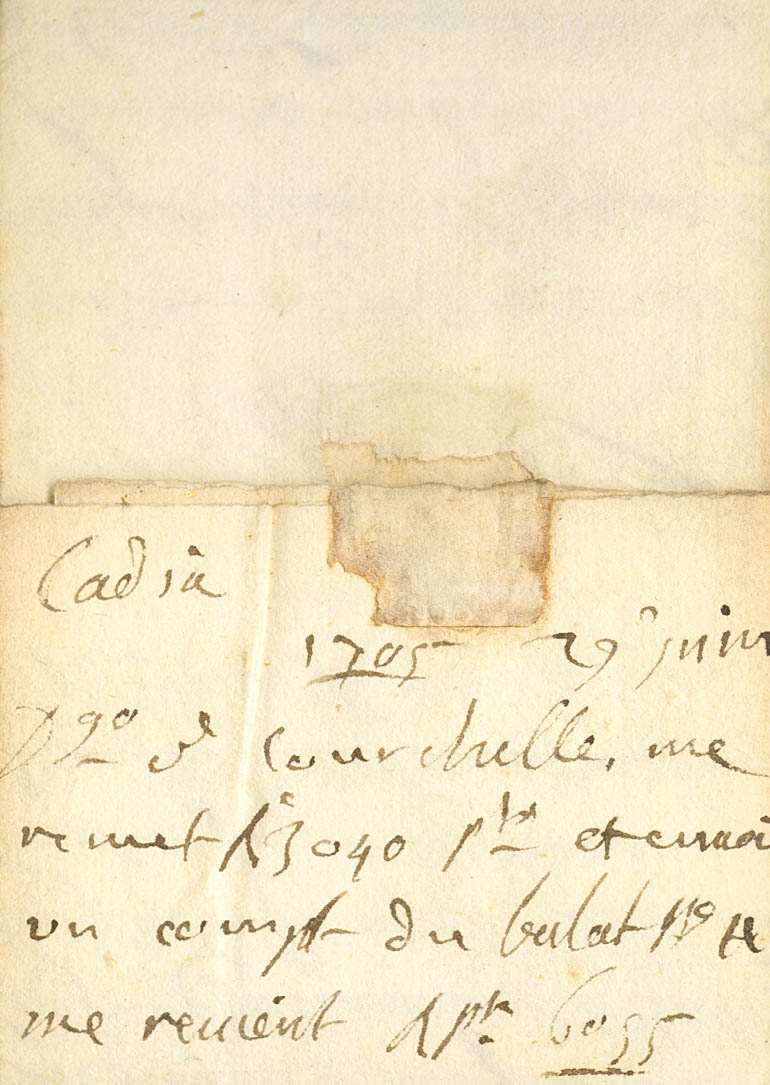 Cadix
1705 29 juin
D^go d^e Courchelle, me
remet R 3040 p^tes et envoi
un compt du balat p^r
me revient R p^tes 6055